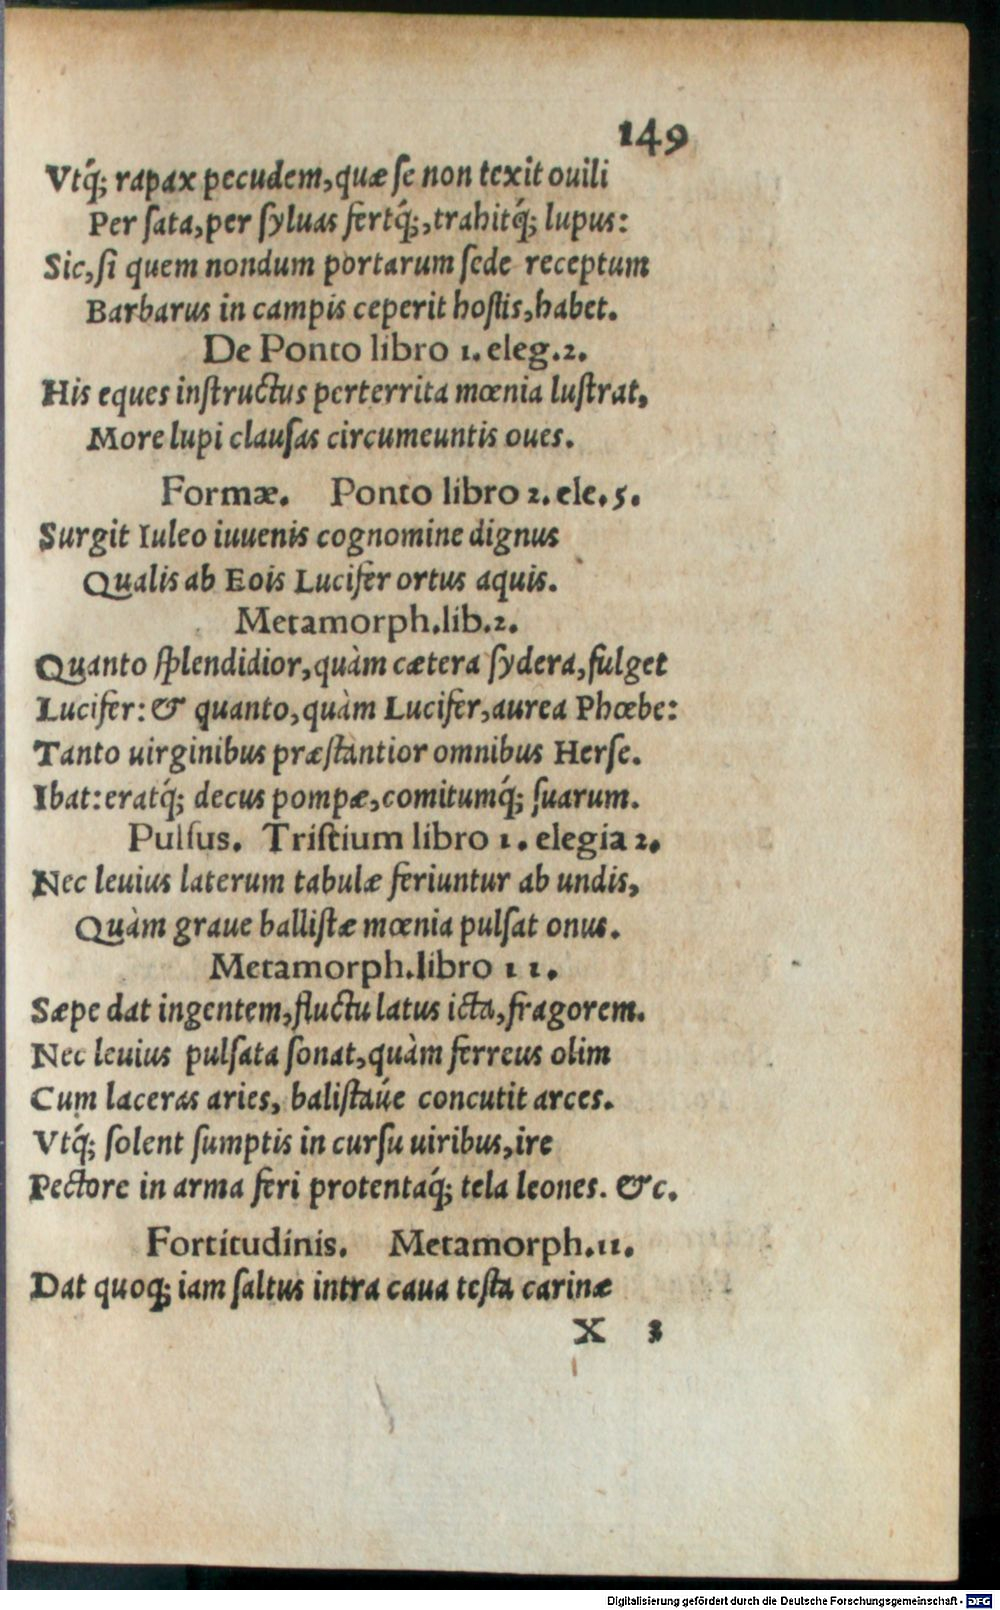 149
Vtq́; rapax pecudem, quæ ſe non texit ouili
Per ſata, per ſyluas fertq́;, trahitq́; lupus:
Sic, ſi quem nondum portarum ſede receptum
Barbarus in campis ceperit hoſtis, habet.
De Ponto libro 1. eleg. 2.
His eques inſtructus perterrita mœnia luſtrat,
More lupi clauſas circumeuntis oues.
Formæ. Ponto libro 2. ele. 5.
Surgit Iuleo iuuenis cognomine dignus
Qualis ab Eois Lucifer ortus aquis.
Metamorph. lib. 2.
Quanto ſplendidior, quàm cætera ſydera, fulget
Lucifer: & quanto, quàm Lucifer, aurea Phœbe:
Tanto uirginibus præſtantior omnibus Herſe.
Ibat: eratq́; decus pompæ, comitumq́; ſuarum.
Pulſus. Triſtium libro 1. elegia 2.
Nec leuius laterum tabulæ feriuntur ab undis,
Quàm graue balliſtæ mœnia pulſat onus.
Metamorph. libro 11.
Sæpe dat ingentem, fluctu latus icta, fragorem.
Nec leuius pulſata ſonat, quàm ferreus olim
Cum laceras aries, baliſtaúe concutit arces.
Vtq́; ſolent ſumptis in curſu uiribus, ire
Pectore in arma feri protentaq́; tela leones. &c.
Fortitudinis. Metamorph. 11.
Dat quoq; iam ſaltus intra caua teſta carinæ
X 3
Digitalisierung gefördert durch die Deutsche Forschungsgemeinschaft - DFG